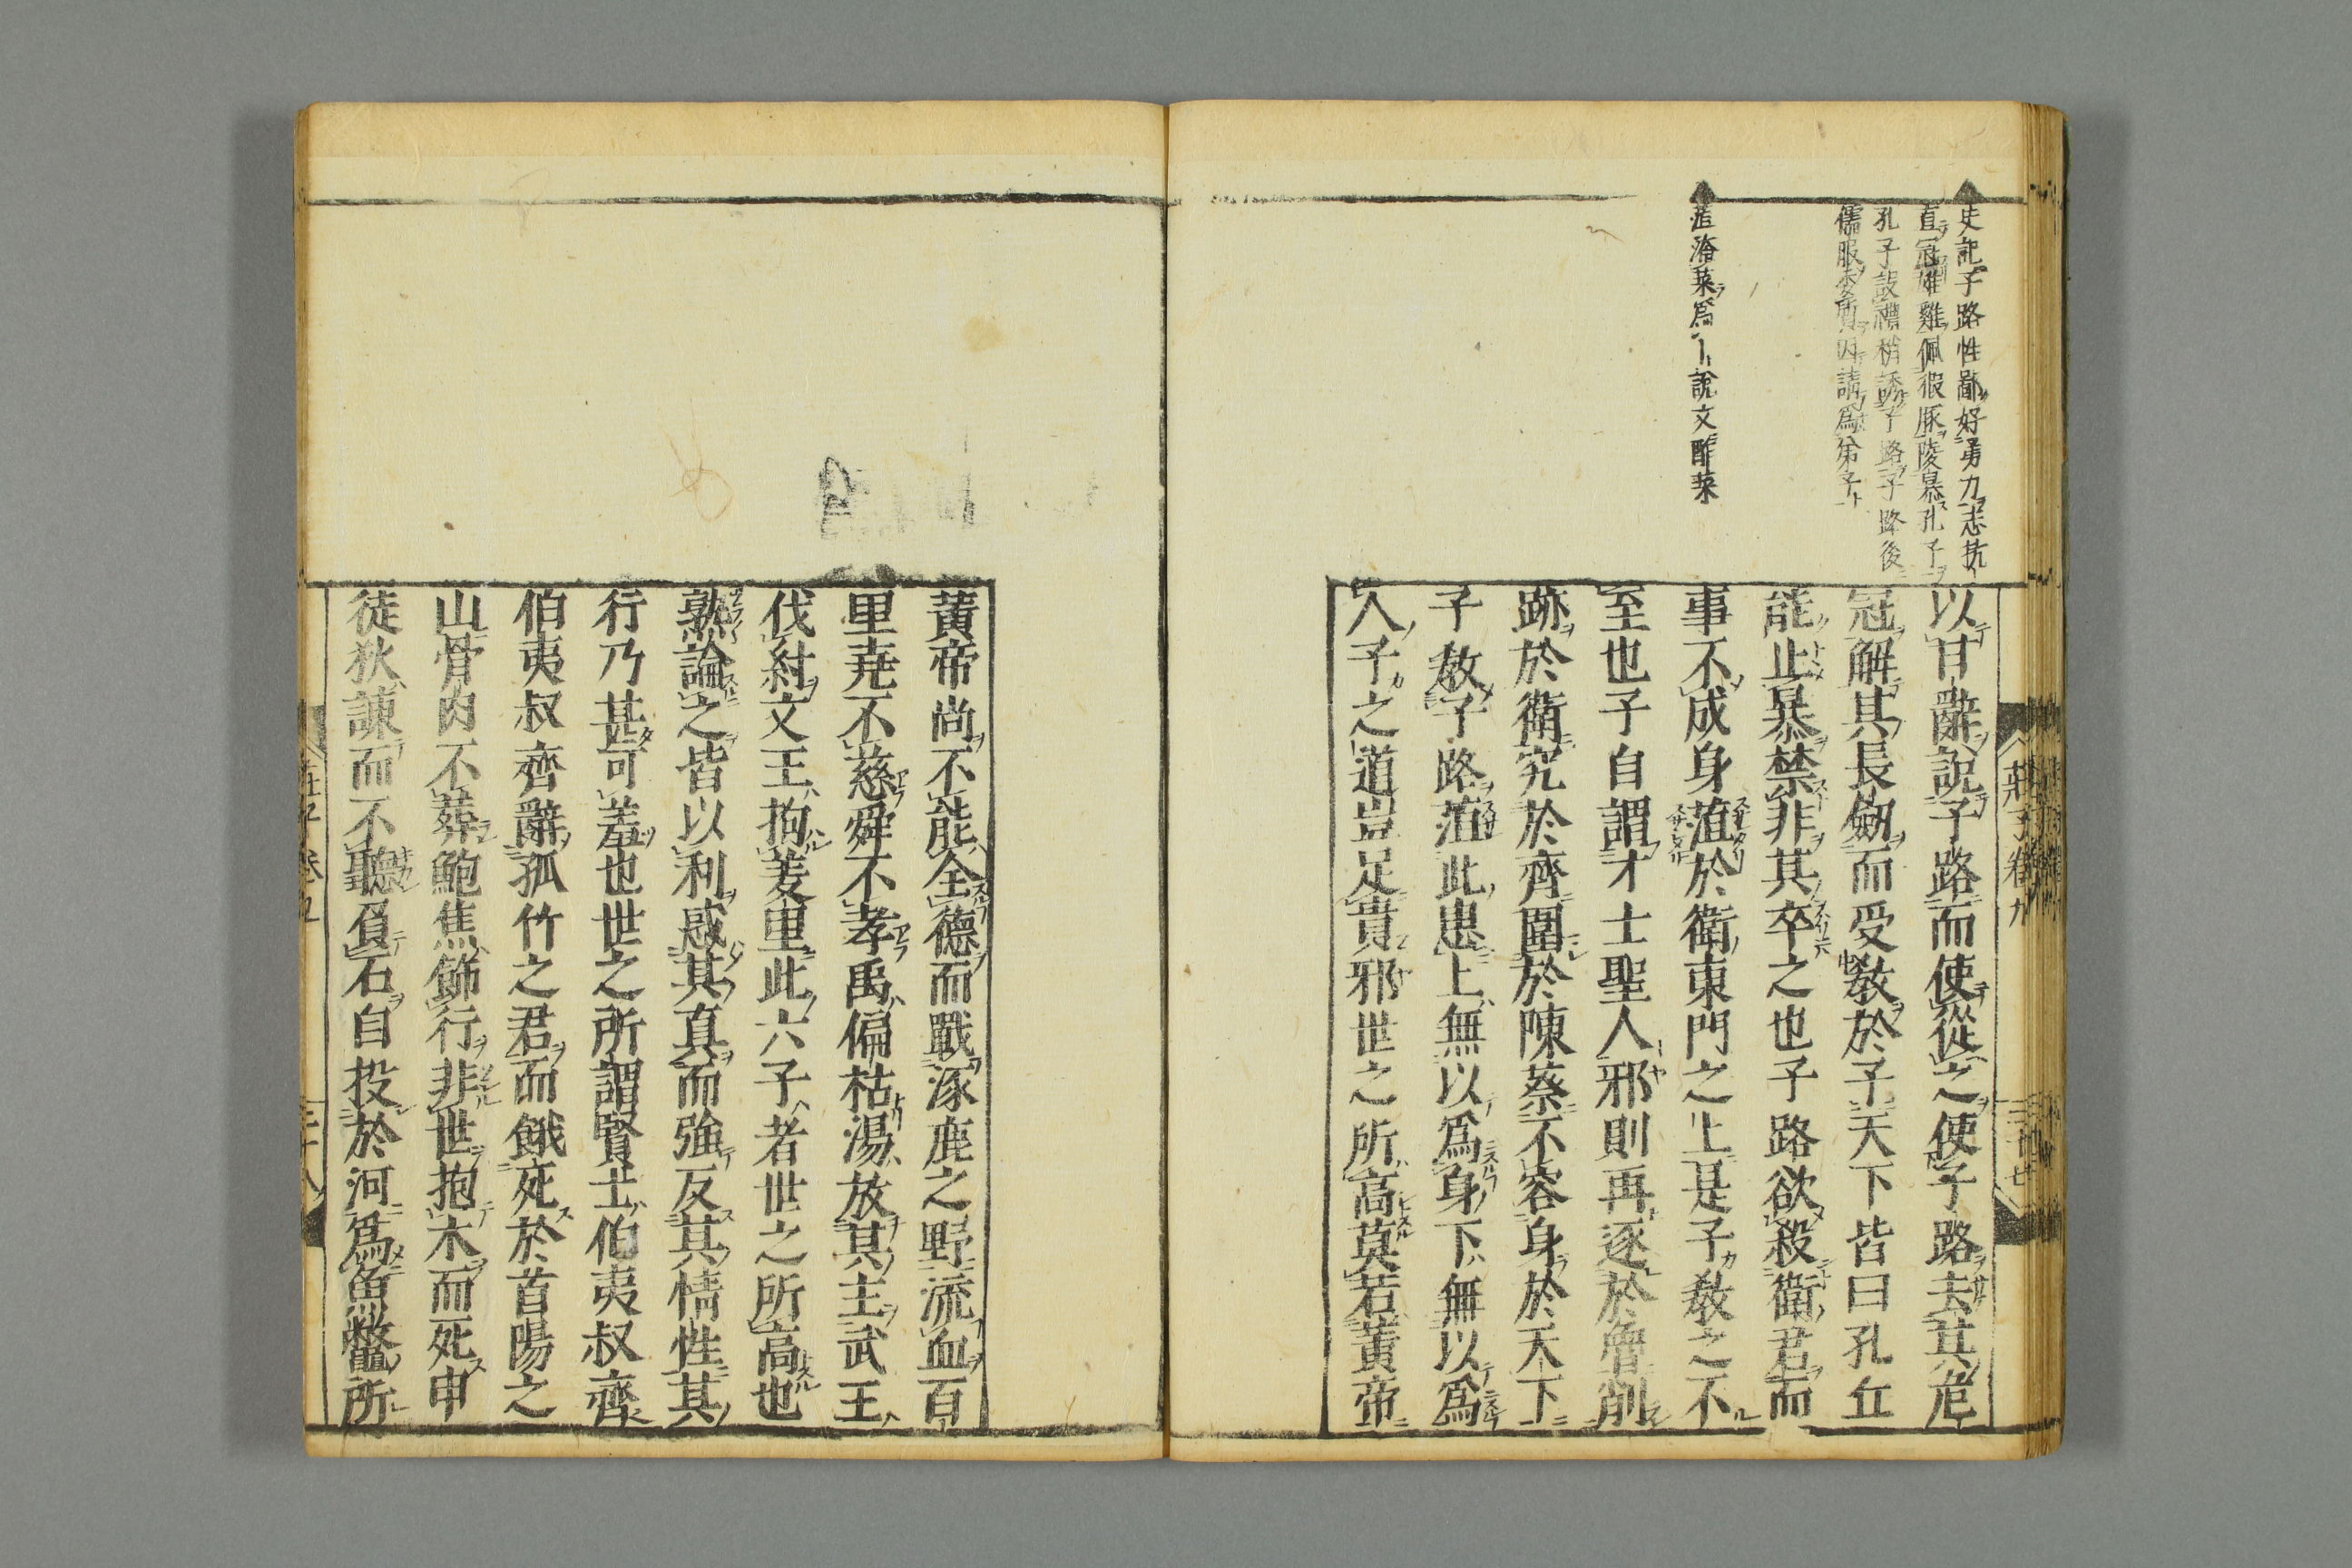 史記子路性鄙好勇力志抗
直冠雄雞佩猳豚陵暴孔子
孔子設禮稍誘子路子路後
儒服委質因請爲弟子
菹淹菜爲 說文酢菜
以甘辭說子路而使從之使子路去其危
冠解其長劒而受敎於子天下皆曰孔丘
能止暴禁非其卒之也子路欲殺衞君而
事不成身菹於衞東門之上是子敎之不
至也子自謂才士聖人邪則再逐於魯削
跡於衞窮於齊圍於陳蔡不容身於天下
子敎子路菹此患上無以爲身下無以爲
人子之道豈足貴邪世之所高莫若黃帝
莊子卷九
三十七
黃帝尚不能全德而戰涿鹿之野流血百
里堯不慈舜不孝禹偏枯湯放其主武王
伐紂文王拘羑里此六子者世之所高也
熟論之皆以利惑其真而強反其情性其
行乃甚可羞也世之所謂賢士伯夷叔齊
伯夷叔齊辭孤竹之君而餓死於首陽之
山骨肉不葬鮑焦飾行非世抱木而死申
徒狄諫而不聽負石自投於河爲魚鼈所